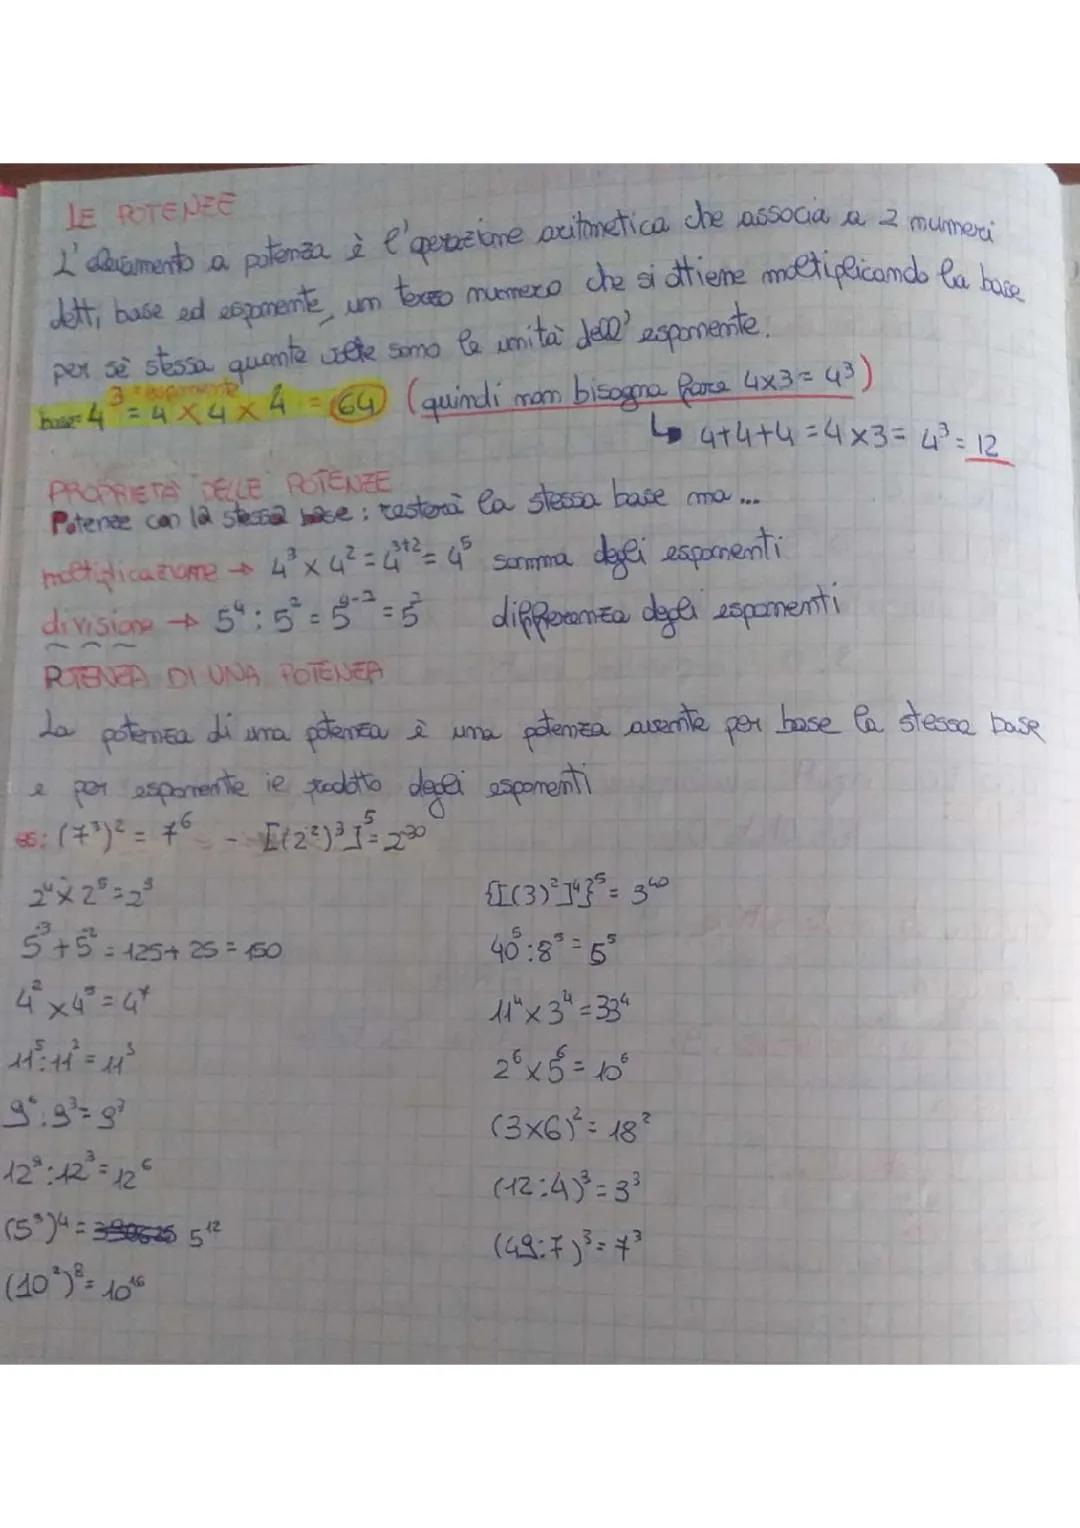 LE POTENZE
L'elevamento a potenza è l'operazione aritmetica che associa a 2 numeri
detti base ed esponente, un terzo numero che si ottiene moltiplicando la base
per sè stessa quante volte sono le unità dell'esponente.
base= 4³ = esponente = 4 × 4 × 4 = 64 (quindi non bisogna fare 4x3= 4³)
↳ 4+4+4 = 4x3 = 4³ = 12
PROPRIETÀ DELLE POTENZE
Potenze con la stessa base: resterà la stessa base ma...
moltiplicazione → 4³ x 4² = 4³⁺² = 4⁵ somma degli esponenti
divisione → 5⁴ : 5² = 5⁴⁻² = 5² differenza degli esponenti
POTENZA DI UNA POTENZA
La potenza di una potenza è una potenza avente per base la stessa base
e per esponente il prodotto degli esponenti
es: (7³)² = 7⁶ - [(2²)³]⁵ = 2³⁰
2⁴ x 2⁵ = 2⁹
5³ + 5² = 125 + 25 = 150
4² x 4⁵ = 4⁷
11⁵ : 11² = 11³
9⁶ : 9³ = 9³
12⁹ : 12³ = 12⁶
(5³)⁴ = 5¹²
(10²)⁸ = 10¹⁶
{[(3)²]⁴}⁵ = 3⁴⁰
40⁵ : 8⁵ = 5⁵
11⁴ x 3⁴ = 33⁴
2⁶ x 5⁶ = 10⁶
(3x6)² = 18²
(12:4)³ = 3³
(49:7)³ = 7³